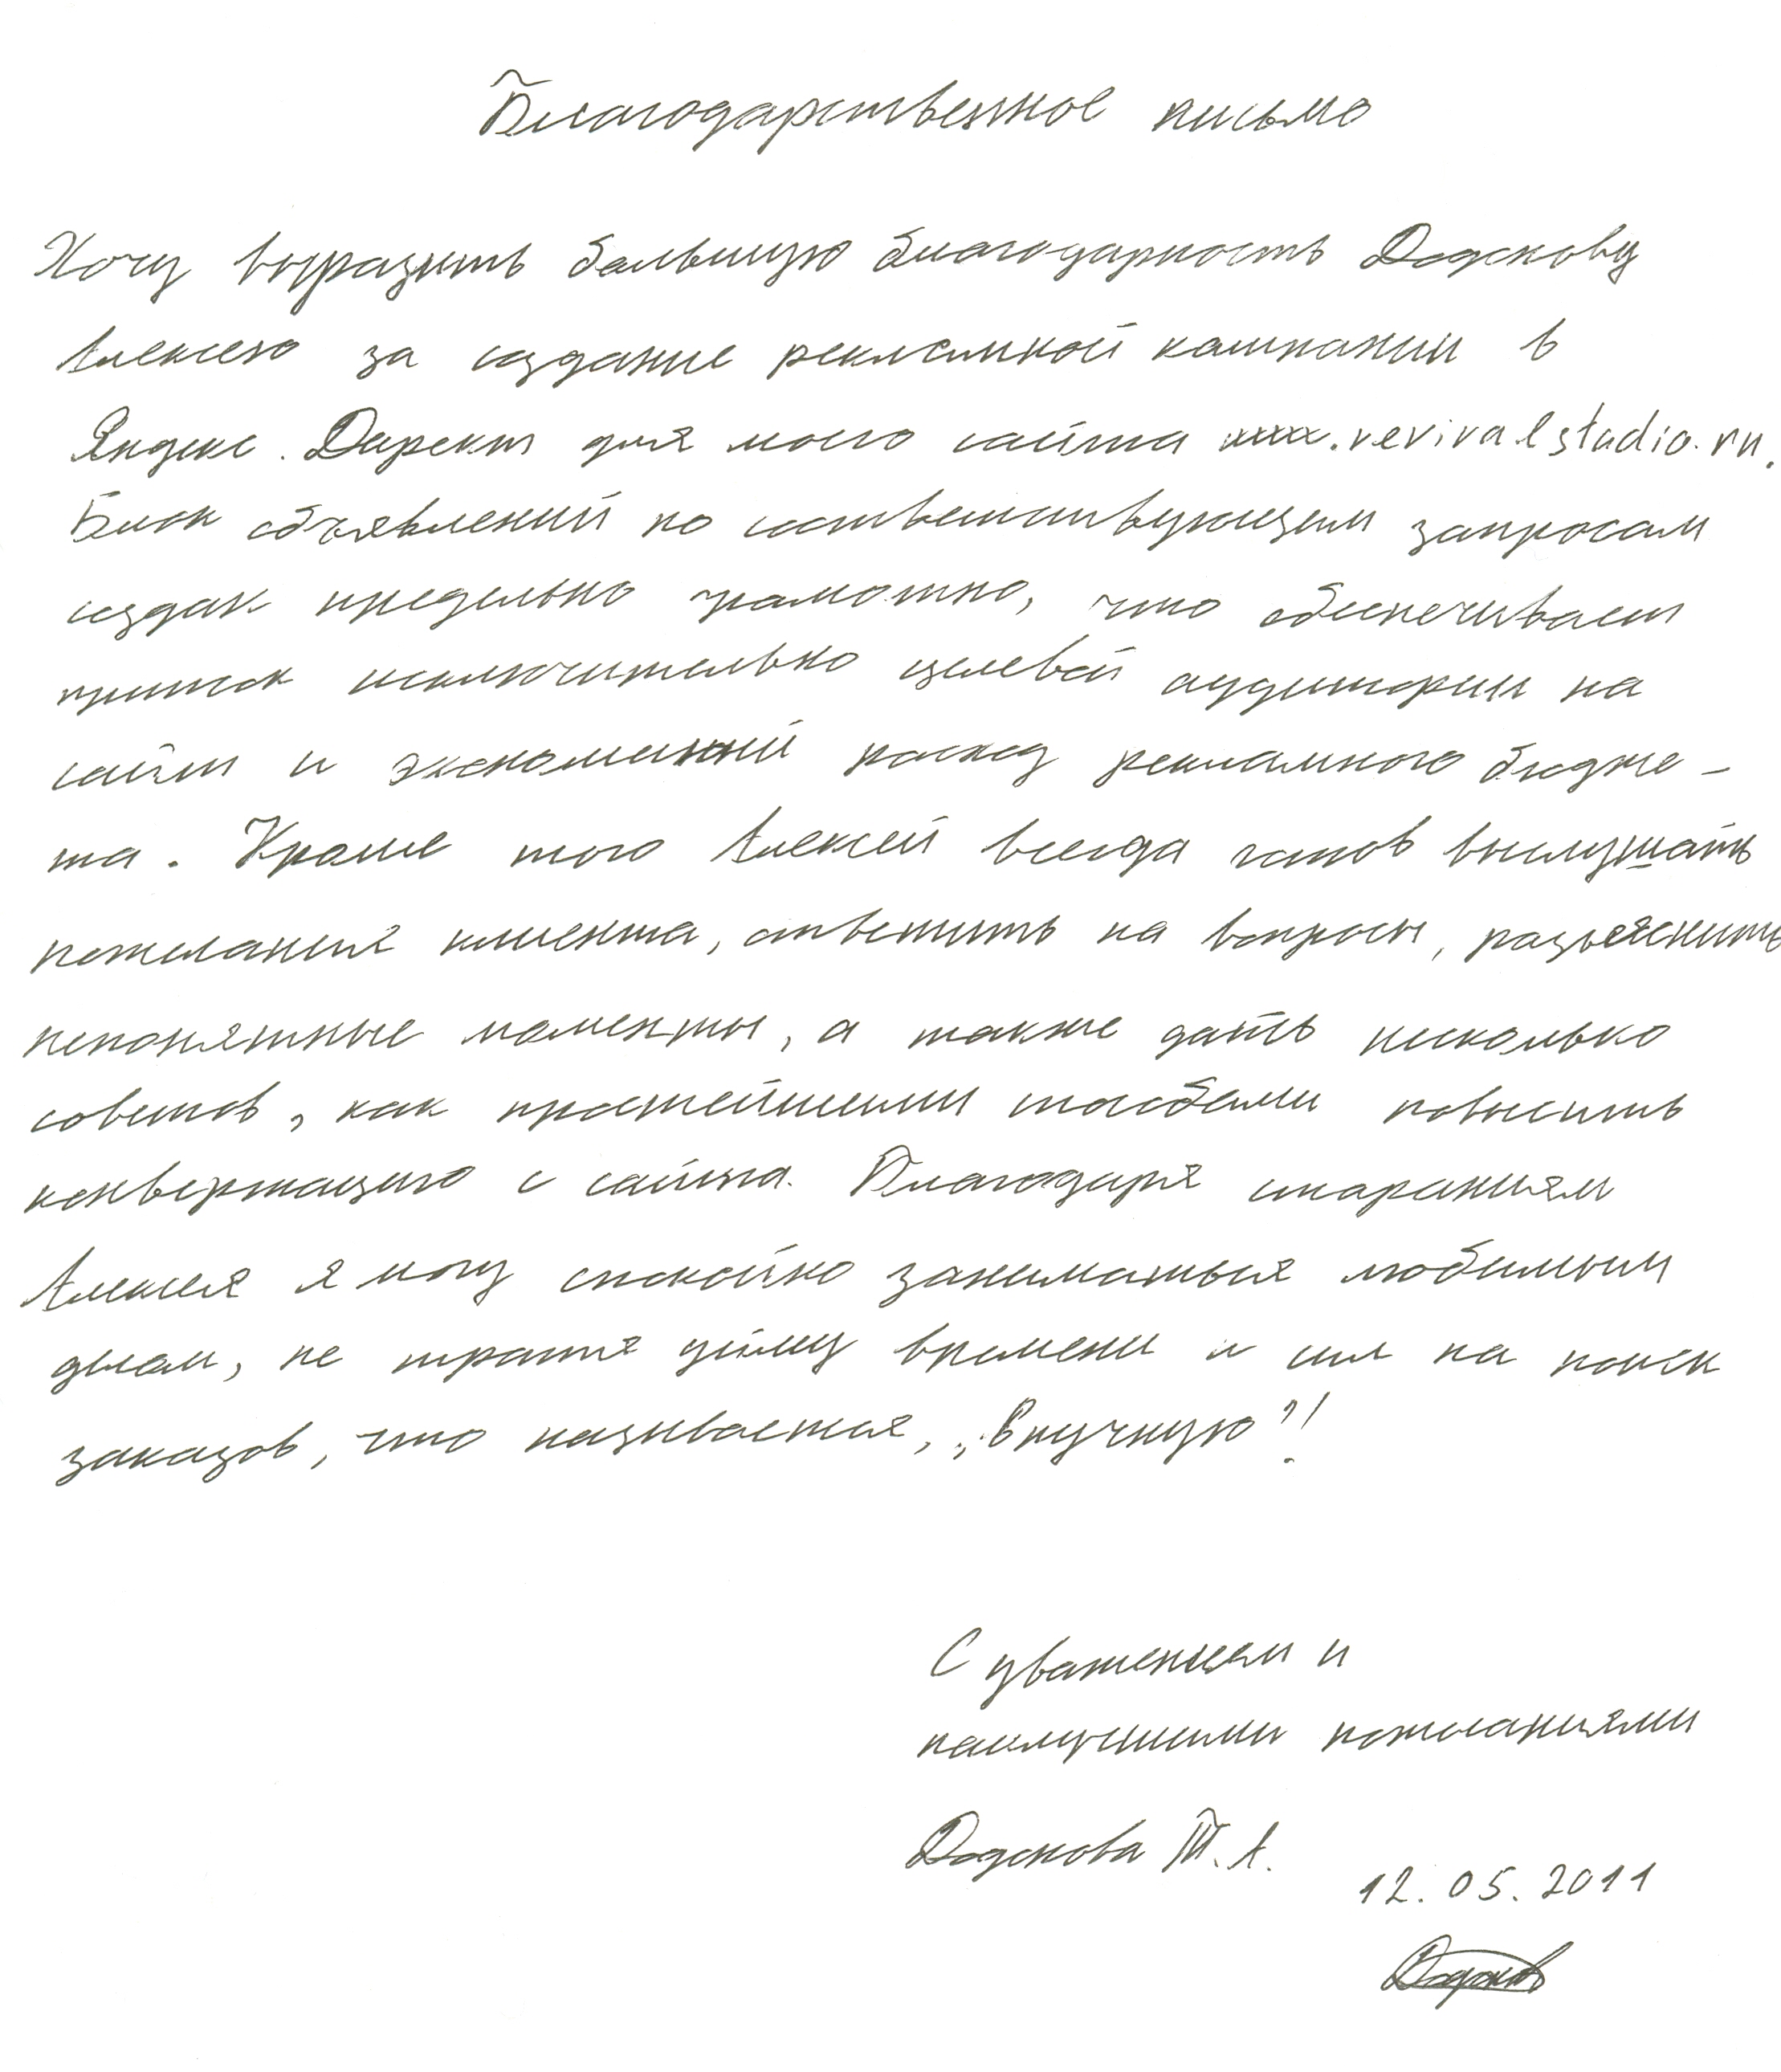 Благодарственное письмо
Хочу выразить большую благодарность Додонову
Алексею за создание рекламной кампании в
Яндекс.Директ для моего сайта www.revivalstudio.ru.
Блок объявлений по соответствующим запросам
создан предельно грамотно, что обеспечивает
приток исключительно целевой аудитории на
сайт и экономный расход рекламного бюдже-
та. Кроме того Алексей всегда готов выслушать
пожелания клиента, ответить на вопросы, разъяснить
непонятные моменты, а также дать несколько
советов, как простейшими способами повысить
конвертацию с сайта. Благодаря стараниям
Алексея я могу спокойно заниматься любимым
делом, не тратя уйму времени и сил на поиск
заказов, что называется, „вручную"!
С уважением и
наилучшими пожеланиями
Т. А.
12.05.2011